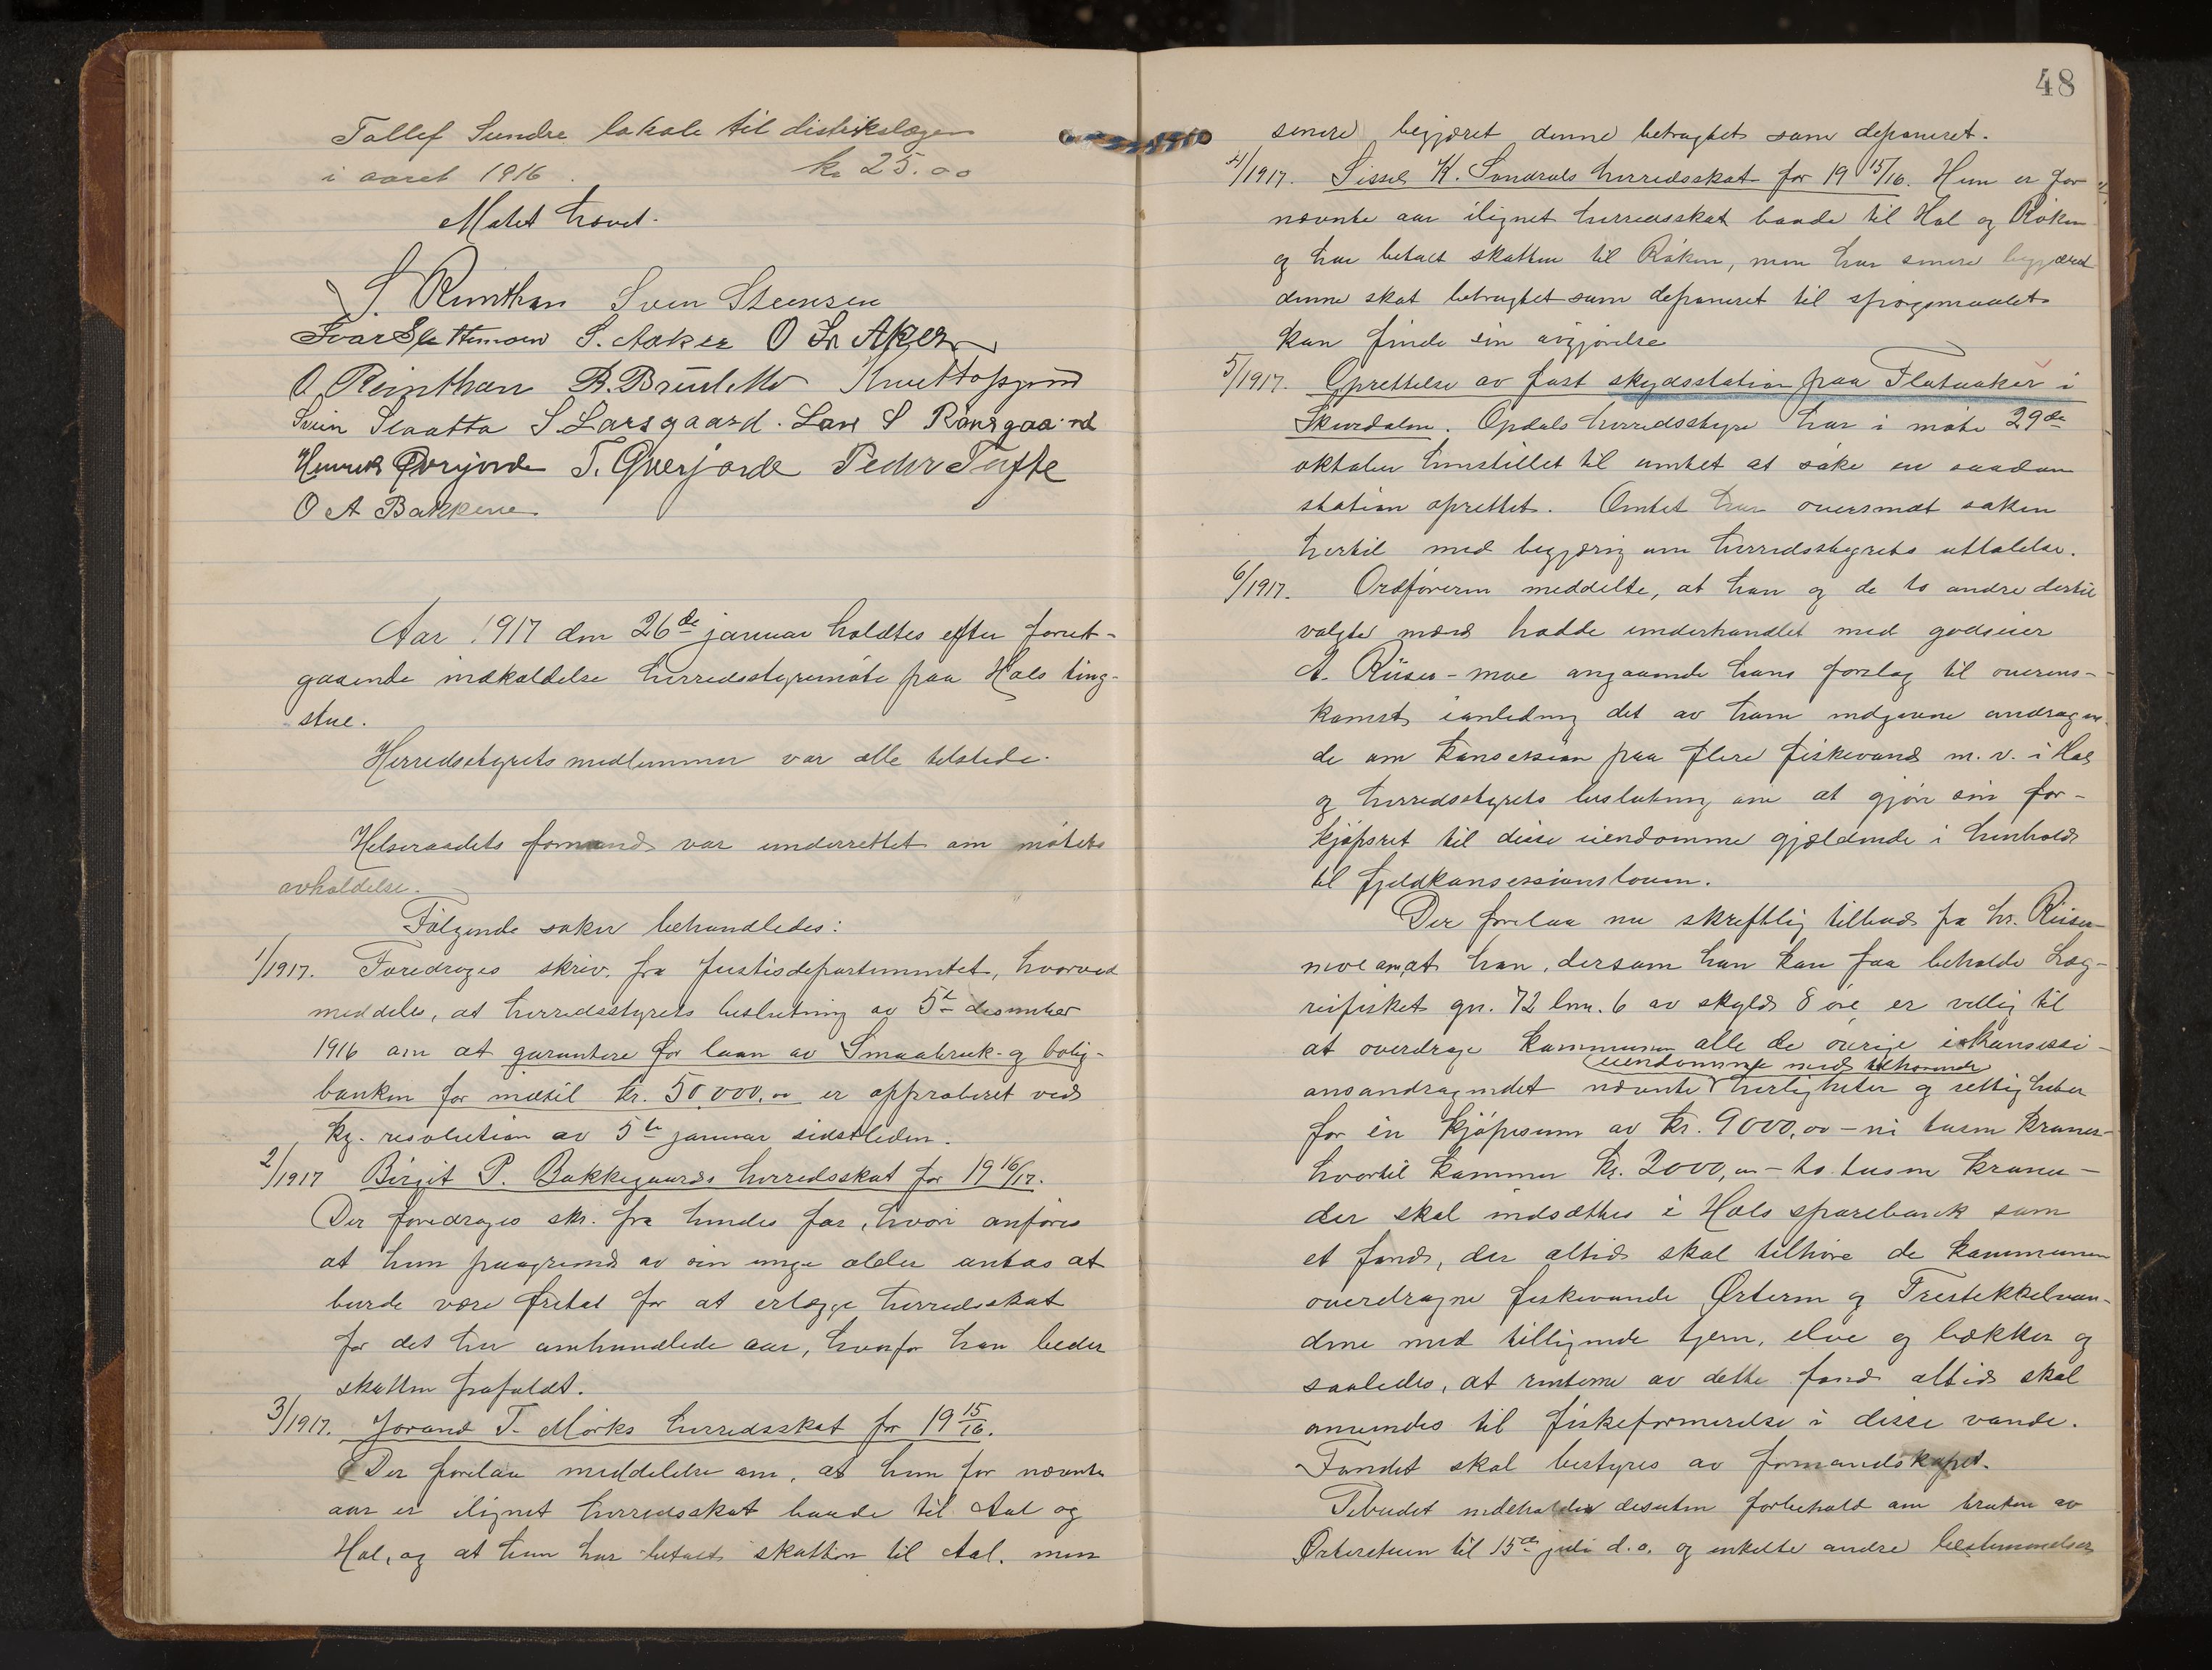 Tollef Sundre lokale til distrikslægen
i aaret 1916. kr 25.00
Møtet hævet.
S. Reinthon Sven Steensen
Ivar Slettemoen S. Aaker O Aker
O. Reinthon B. Brusletto Knut Hofsgrind
Svein Slaatta S Larsgaard. Lars S Rønsgaard
Henrik Øvrejorde T. Qverjorde Peder Tufte
O A Bakkene
Aar 1917 den 26de januar holdtes efter forut-
gaaende indkaldelse herredsstyremøte paa Hols ting-
stue.
Herredsstyrets medlemmer var alle tilstede.
Helseraadets formand var underrettet om møtets
avholdelse.
Følgende saker behandledes:
1/1917. Foredroges skriv. fra Justisdepartementet, hvorved
meddeles, at herredsstyrets beslutning av 5te desember
1916 om at garantere for laan av Smaabruk- og bolig-
banken for indtil kr. 50,000,00 er approberet ved
kg. resolution av 5te januar sidstleden.
2/1917 Birgit P. Bakkegaards herredsskat for 1916/17.
Der foredroges skr. fra hendes far, hvori anføres
at hun paagrund av sin unge alder antas at
burde være fritat for at erlægge herredsskat
for det her omhandlede aar, hvorfor han beder
skatten frafaldt.
3/1917. Jorand T. Mørks herredsskat for 1915/16.
Der forelaa meddelelse om, at hun for nævnte
aar er ilignet herredsskat baade til Aal og
Hol, og at hun har betalt skatten til Aal, men
48
senere begjæret denne betragtet som deponeret.
4/1917. Sissel K. Sondrals herredsskat for 1915/16. Hun er for
nævnte aar ilignet herredsskat baade til Hol og Røken
og har betalt skatten til Røken, men har senere begjæret
denne skat betragtet som deponeret til spørgsmaalet
kan finde sin avgjørelse
5/1917. Oprettelse av fast skydsstation paa Flataaker i
Skurdalen. Opdals herredsstyre har i møte 29de
oktober henstillet til amtet at søke en saadan
station oprettet. Amtet har oversendt saken
hertil med begjæring om herredsstyrets uttalelse.
6/1917. Ordføreren meddelte, at han og de to andre dertil
valgte mænd hadde underhandlet med godseier
A. Riiser-moe angaaende hans forslag til overens-
komst i anledning det av ham indgivne andragen-
de om konsession paa flere fiskevand m. v. i Hol
og herredsstyrets beslutning om at gjøre sin for-
kjøpsret til disse eiendomme gjældende i henhold
til fjeldkonsessionsloven.
Der forelaa nu skriftlig tilbud fra hr. Riiser-
moe om, at han, dersom han kan faa beholde Læg-
reifisket gn. 72 bnr. 6 av skyld 8 øre, er villig til
at overdrage kommunen alle de øvrige i konsessi-
eiendomme med tilhørende
onsandragendet nævnte herligheter og rettigheter
for en kjøpesum av kr. 9000,00 – ni tusen kroner –
hvortil kommer kr. 2000,00 – to tusen kroner –
der skal indsættes i Hols sparebank som
et fond, der altid skal tilhøre de kommunen
overdragne fiskevande Ørteren og Trestikkelvan-
dene med tilligende tjern, elve og bækker og
saaledes, at renterne av dette fond altid skal
anvendes til fiskeformerelse i disse vande.
Fondet skal bestyres av formandskapet.
Tilbudet indeholder desuten forbehold om bruken av
Ørterstuen til 15de juli d. a. og enkelte andre bestemmelser